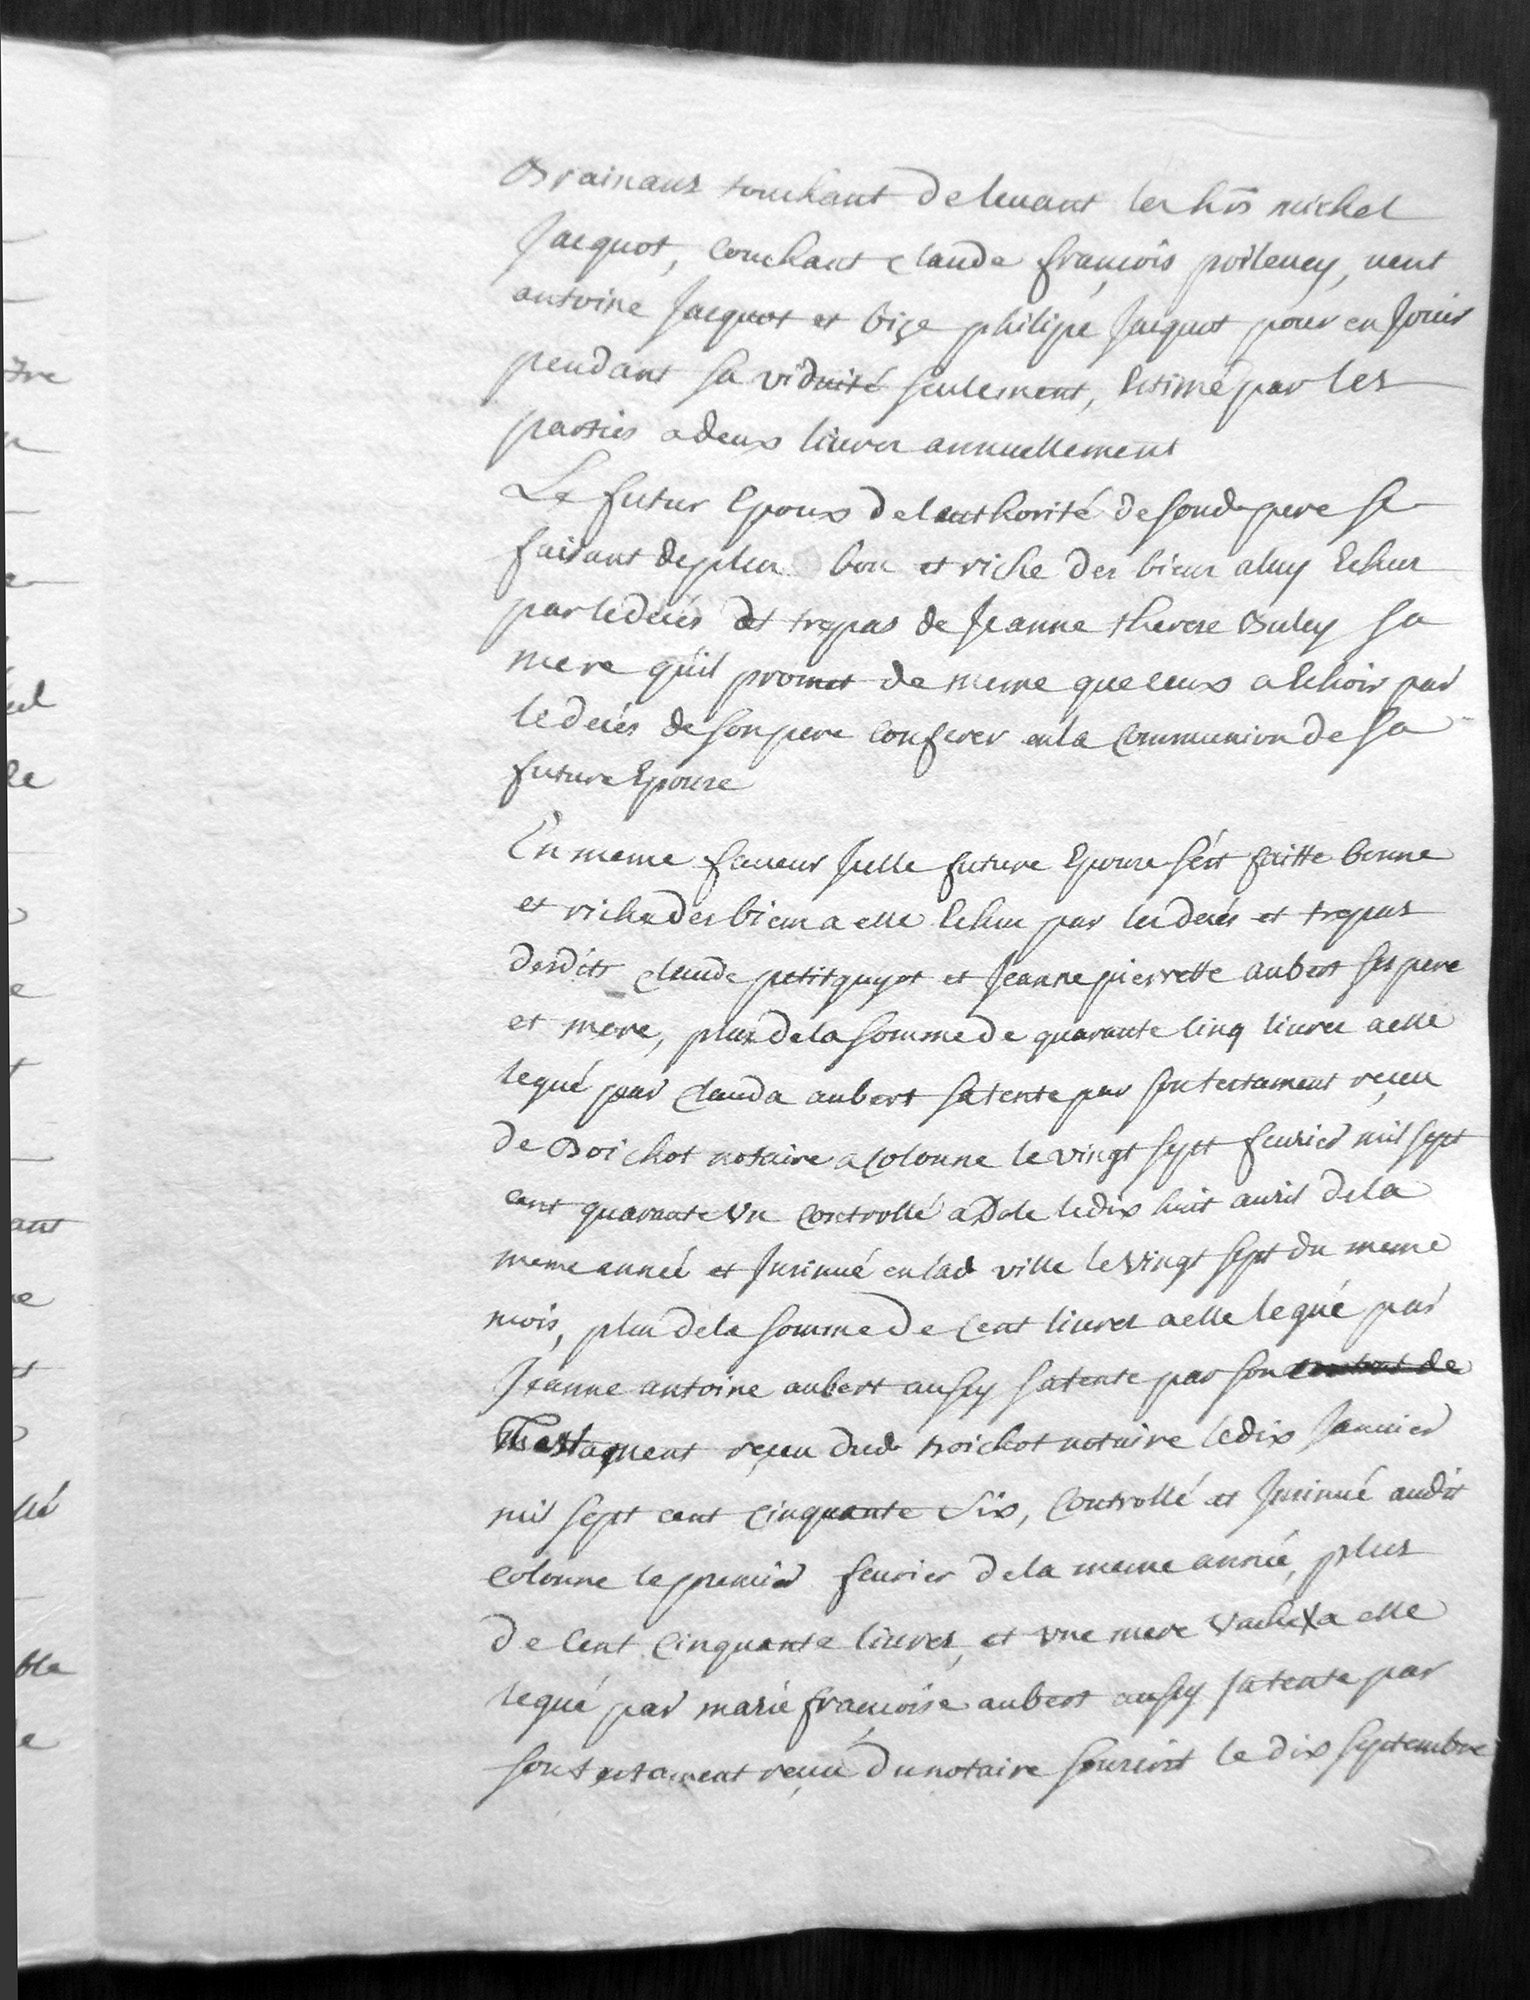 Brainans touchant de levant les hrs michel
Jacquot, couchant claude françois poileney, vent
antoine Jacquot et bize philipe Jacquot pour en Jouir
pendant sa viduité seulement, Estimé par les
parties a deux livres annuellement
Le futur Epoux de lauthorité de sond pere se
faisant de plus bon et riche des biens a luy Echus
par le decés et trepas de Jeanne therese Buley sa
mere quil promet de meme que ceux a Echoir par
le decés de son pere conferer en la communion de sa
future Epouse
En meme faveur Jcelle future Epouse sést faitte bonne
et riche des biens a elle Echus par les decés et trepas
desdits claude petitguyot et Jeanne pierrette aubert ses pere
et mere, plus de la somme de quarante cinq livres a elle
legué par clauda aubert sa tente par son testament reçeu
de Boichot notaire a Colonne le vingt sept fevrier mil sept
cent quarante Un controllé a Dole le dix huit avril de la
meme année et Jnsinué en lad ville le vingt sept du meme
mois, plus de la somme de cent livres a elle legué par
Jeanne antoine aubert aussy sa tente par son
Testament reçeu dud boichot notaire le dix Janvier
mil sept cent cinquante Six, controllé et Jnsinué audit
colonne le premier fevrier de la meme année, plus
de cent cinquante livres, et une mere vache a elle
legué par marie françoise aubert aussy sa tente par
son testament reçeu du notaire souscrit le dix septembre
tre
ul
le
ant
llé
ble